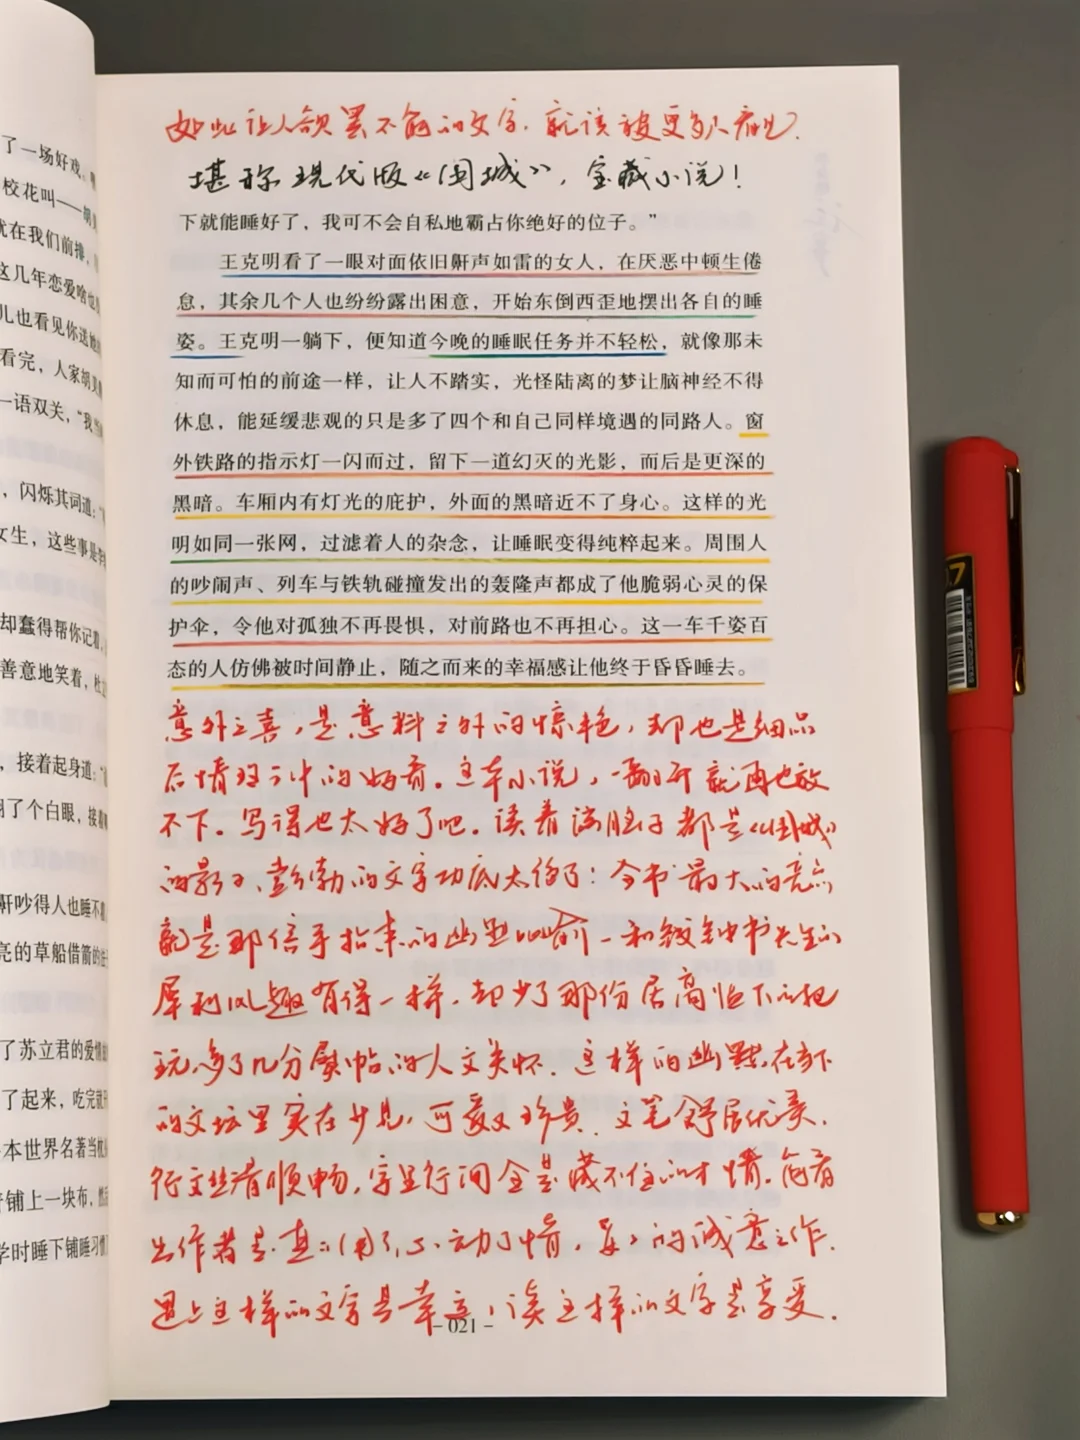 如此让人欲罢不能的文字，就该被更多人看见.
堪称现代版《围城》，宝藏小说！
下就能睡好了，我可不会自私地霸占你绝好的位子。”
王克明看了一眼对面依旧鼾声如雷的女人，在厌恶中顿生倦
怠，其余几个人也纷纷露出困意，开始东倒西歪地摆出各自的睡
姿。王克明一躺下，便知道今晚的睡眠任务并不轻松，就像那未
知而可怕的前途一样，让人不踏实，光怪陆离的梦让脑神经不得
休息，能延缓悲观的只是多了四个和自己同样境遇的同路人。窗
外铁路的指示灯一闪而过，留下一道幻灭的光影，而后是更深的
黑暗。车厢内有灯光的庇护，外面的黑暗近不了身心。这样的光
明如同一张网，过滤着人的杂念，让睡眠变得纯粹起来。周围人
的吵闹声、列车与铁轨碰撞发出的轰隆声都成了他脆弱心灵的保
护伞，令他对孤独不再畏惧，对前路也不再担心。这一车千姿百
态的人仿佛被时间静止，随之而来的幸福感让他终于昏昏睡去。
意外之喜，是意料之外的惊艳，却也是细品
后情理之中的好看。这本小说，一翻开就再也放
不下。写得也太好了吧。读着满脑子都是《围城》
的影子、彭勃的文字功底太绝了：今书最大的亮点
就是那信手拈来的幽默比喻——和钱钟书先生的
犀利风趣有得一样，却少了那份居高临下的把
玩，多了几分熨帖的人文关怀。这样的幽默，在当下
的文坛里实在少见，可爱又珍贵。文笔舒展优美，
行文丝滑顺畅，字里行间全是藏不住的才情。能看
出作者是真的用了心、动了情，是的诚意之作.
遇上这样的文字是幸运，读这样的文字是享受.
- 021 -
了一场好戏。
校花叫——胡
就在我们前排，
这几年恋爱啥也
儿也看见你送她
看完，人家胡
一语双关，“我当
，闪烁其词道：“
女生，这些事是
却蠢得帮你记着，
善意地笑着，杜
，接着起身道：“
翻了个白眼，接着
鼾吵得人也睡不
亮的草船借箭的
了苏立君的爱情
了起来，吃完就
本世界名著当枕
铺上一块布，然
学时睡下铺睡习惯
0.7